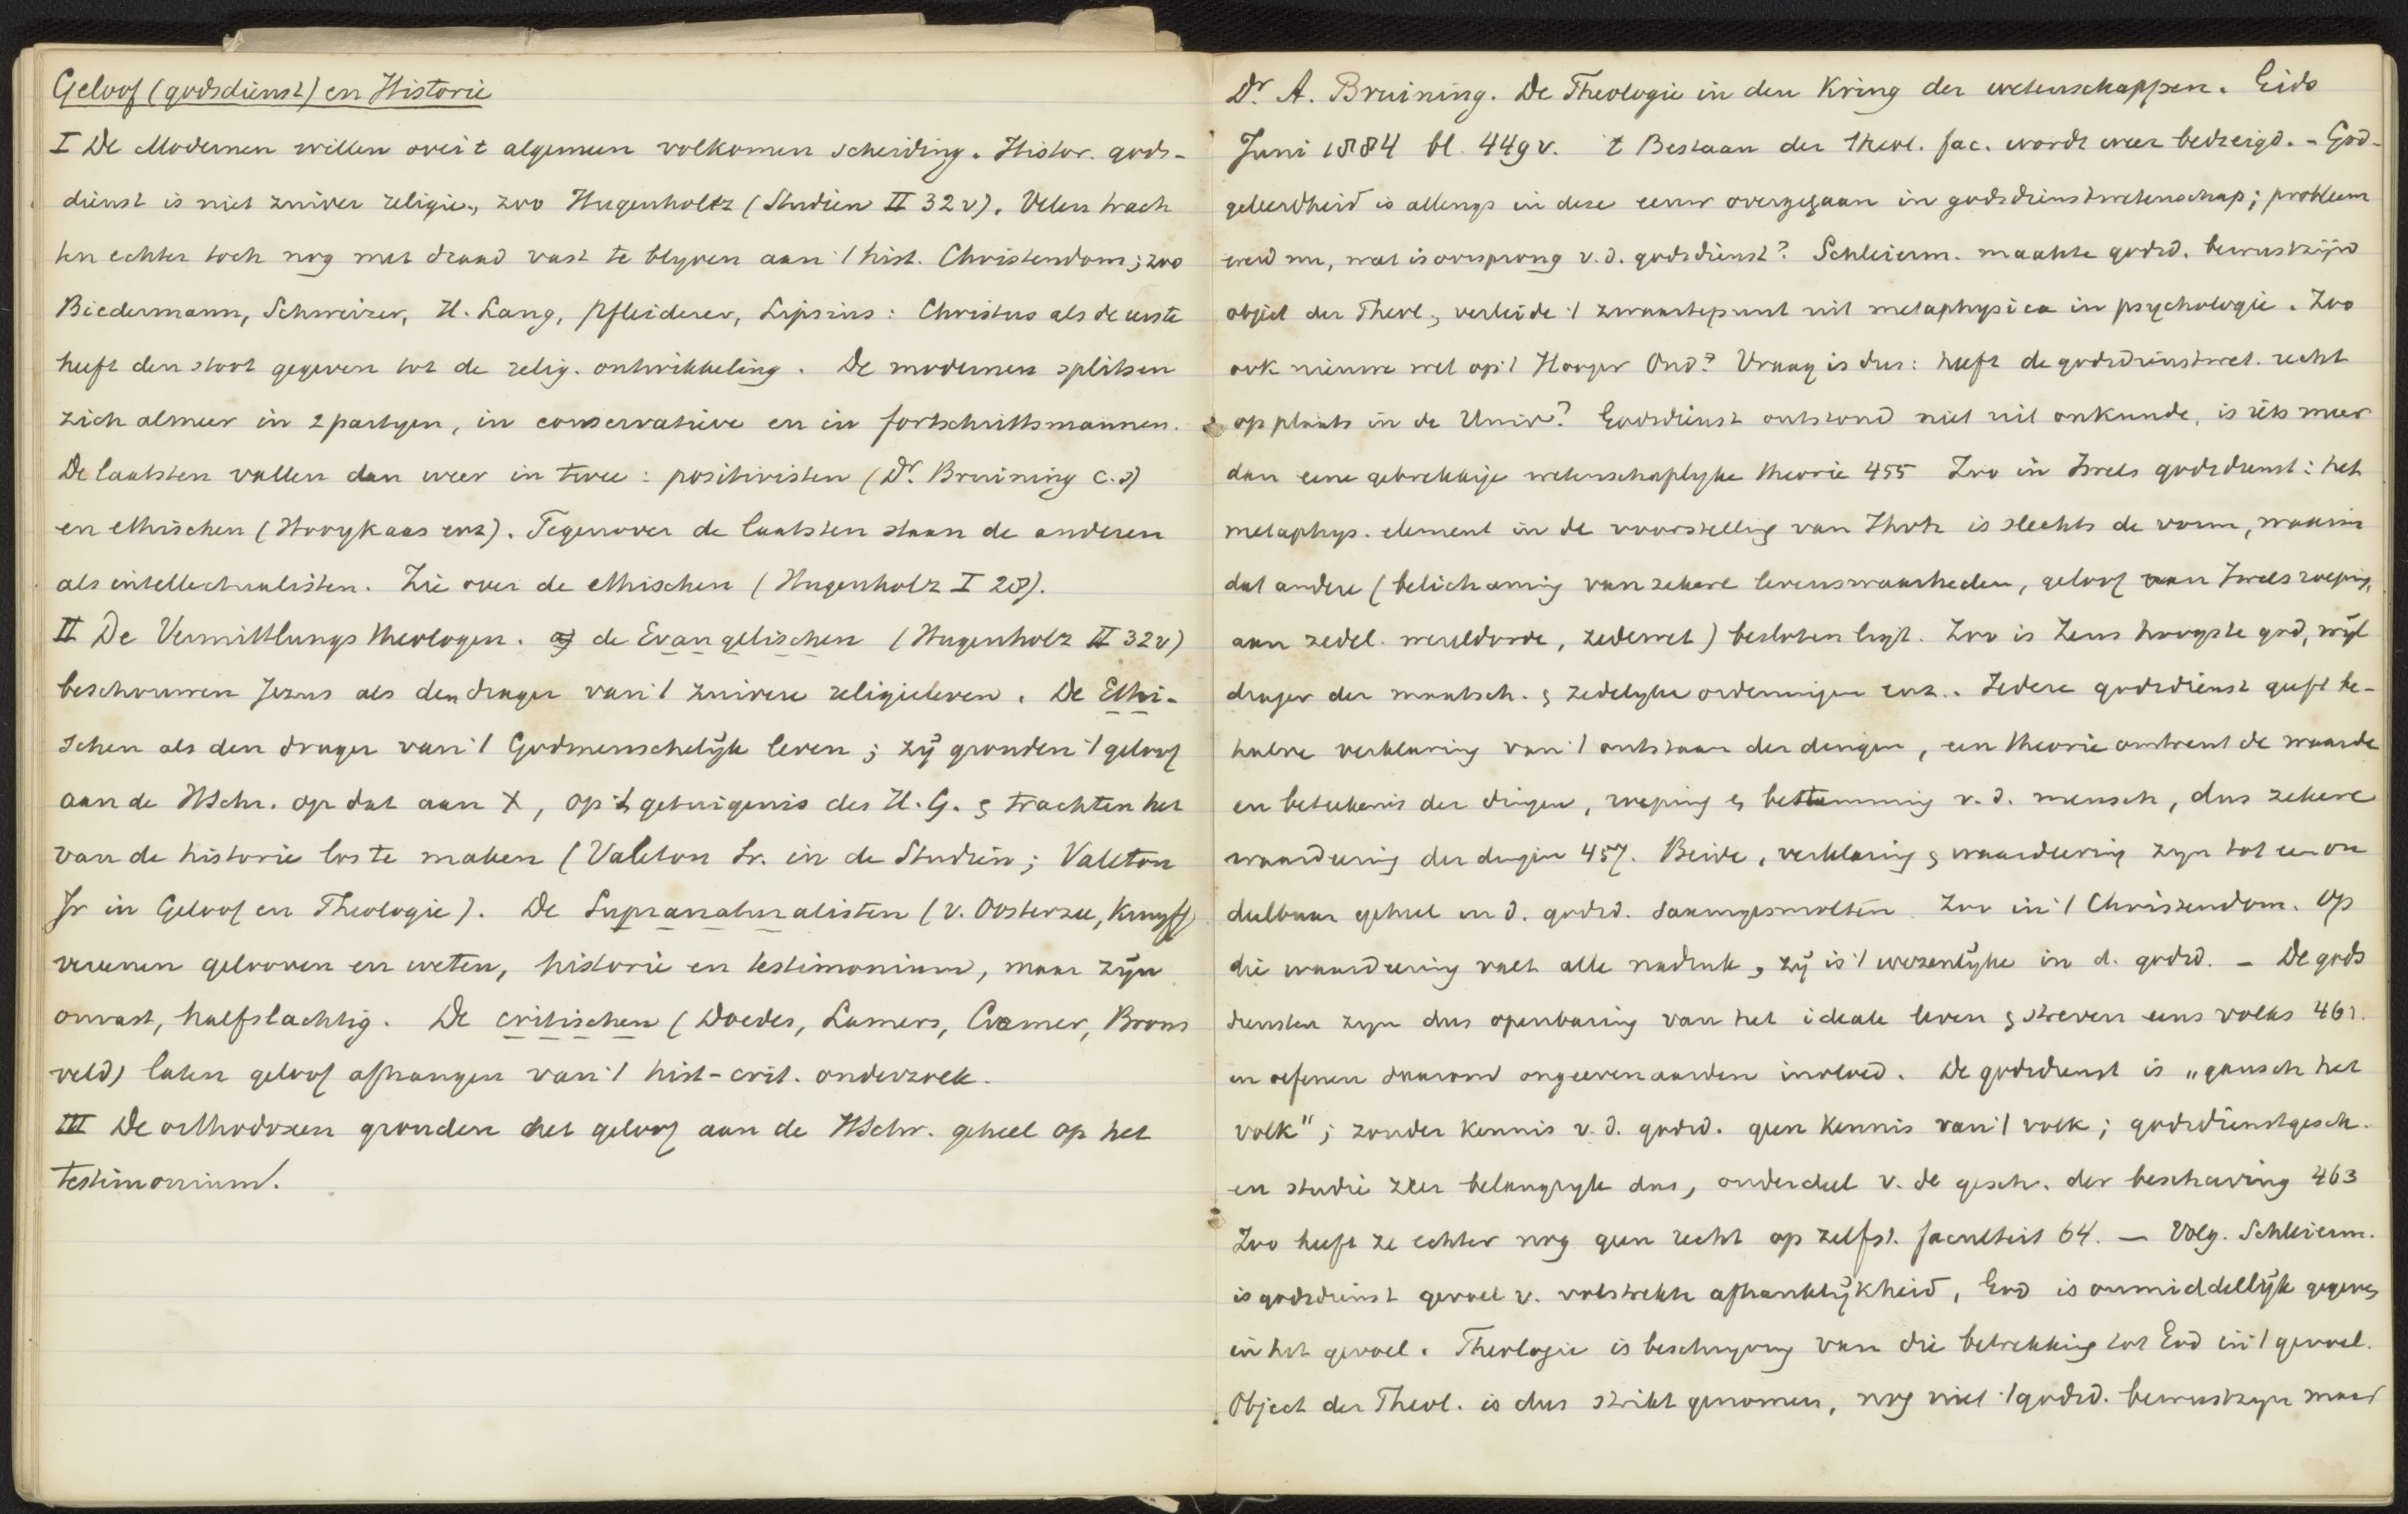 Geloof (godsdienst) en Historie
I De Modernen willen over 't algemeen volkomen scheiding. Histor. gods-
dienst is niet zuiver religie, zoo Hugenholtz (Studien II 32 v). Velen trach
ten echter toch nog met draad vast te blyven aan 't hist. Christendom; zoo
Biedermann, Schweizer, H. Lang, Pfleiderer, Lipsius: Christus als de eerste
heeft den stoot gegeven tot de relig. ontwikkeling. De modernen splitsen
zich almeer in 2 partyen, in conservatieve en in fortschrittsmannen.
De laatsten vallen dan weer in twee: positivisten (Dr. Bruining c.s)
en ethischen (Hooykaas enz). Tegenover de laatsten staan de anderen
als intellectualisten. Zie over de ethischen (Hugenholz I 28).
II De Vermittlungstheologen. a) de Evangelischen (Hugenholz II 32 v)
beschouwen Jezus als den drager van 't zuivere religieleven. De Ethi-
schen als den drager van 't Godmenschelijk leven; zij gronden 't geloof
aan de HSchr. op dat aan X, op 't getuigenis des H. G. & trachten het
van de historie los te maken (Valeton Sr. in de Studiën; Valeton
Jr in Geloof en Theologie). De Supranaturalisten (v. Oosterzee, Kruyff)
vereenen gelooven en weten, historie en testimonium, maar zijn
onvast, halfslachtig. De critischen (Doedes, Lamers, Cramer, Brons
veld) laten geloof afhangen van 't hist-crit. onderzoek.
III De orthodoxen gronden het geloof aan de HSchr. geheel op het
testimonium.
Dr A. Bruining. De Theologie in den Kring der wetenschappen. Gids
Juni 1884 bl. 449 v. 't Bestaan der theol. fac. wordt weer bedreigd. - God-
geleerdheid is allengs in deze eeuw overgegaan in godsdienstwetenschap; probleem
werd nu, wat is oorsprong v. d. godsdienst? Schleierm. maakte godsd. bewustzijn
object der Theol., verleide 't zwaartepunt uit metaphysica in psychologie. Zoo
ook nieuwe wet op 't Hooger Ond.? Vraag is dus: heeft de godsdienstwet. recht
op plaats in de Univ? Godsdienst ontstond niet uit onkunde, is iets meer
dan eene gebrekkige wetenschaplyke theorie 455 Zoo in Isrels godsdienst: het
metaphys. element in de voorstelling van Jhvh is slechts de vorm, waarin
dat andere (belichaming van zekere levenswaarheden, geloof aan Isrels roeping,
aan zedel. wereldorde, zedewet) besloten ligt. Zoo is Zeus hoogste god, wijl
drager der maatsch. & zedelyke ordeningen enz.. Iedere godsdienst geeft be-
halve verklaring van 't ontstaan der dingen, een theorie omtrent de waarde
en beteekenis der dingen, roeping & bestemming v. d. mensch, dus zekere
waardeering der dingen 457. Beide, verklaring & waardeering zyn tot een on
deelbaar geheel in d. godsd. saamgesmolten. Zoo in 't Christendom. Op
die waardeering valt alle nadruk, zij is 't wezenlijke in d. godsd. - De gods
diensten zyn dus openbaring van het ideale leven & streven eens volks 461.
en oefenen daarom ongeevenaarden invloed. De godsdienst is „gansch het
volk"; zonder kennis v. d. godsd. geen kennis van 't volk; godsdienstgesch.
en studie zeer belangryk dus, onderdeel v. de gesch. der beschaving 463
Zoo heeft ze echter nog geen recht op zelfst. faculteit 64. — Volg. Schleierm.
is godsdienst gevoel v. volstrekte afhanklijkheid, God is onmiddellijk gegeven
in het gevoel. Theologie is beschryving van die betrekking tot God in 't gevoel.
Object der Theol. is dus strikt genomen, nog niet 't godsd. bewustzyn maar